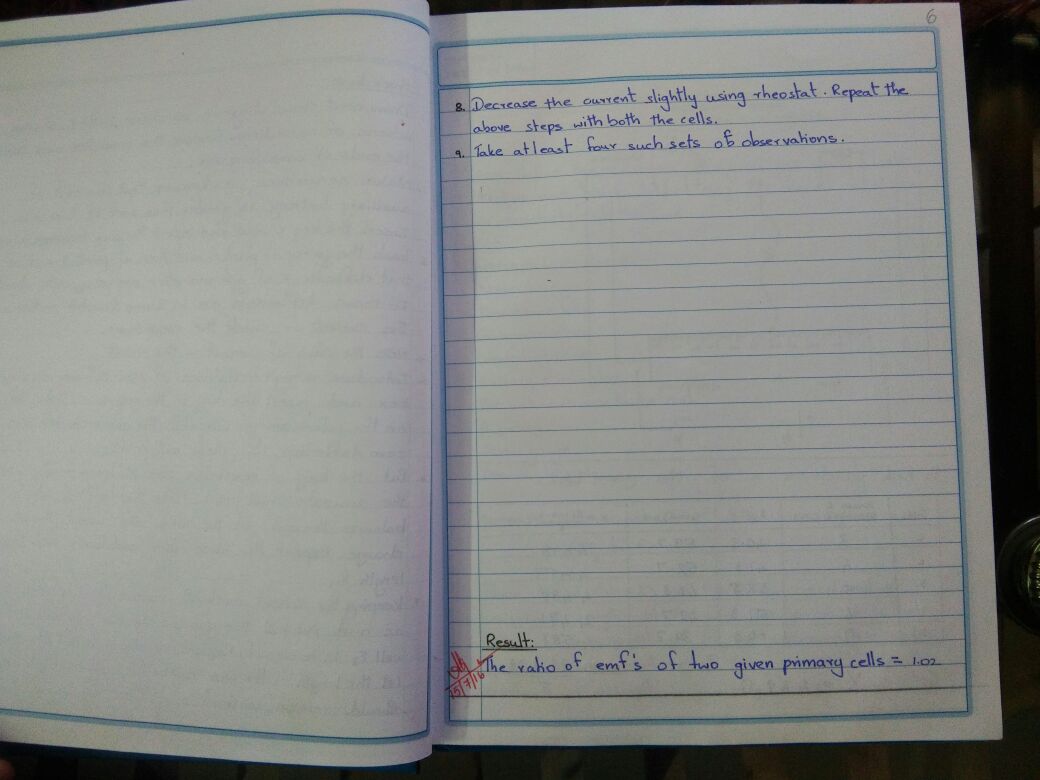 6
8. Decrease the current slightly using rheostat. Repeat the
above steps with both the cells.
9. Take atleast four such sets of observations.
Result:
The ratio of emf's of two given primary cells = 1.02
15/7/16